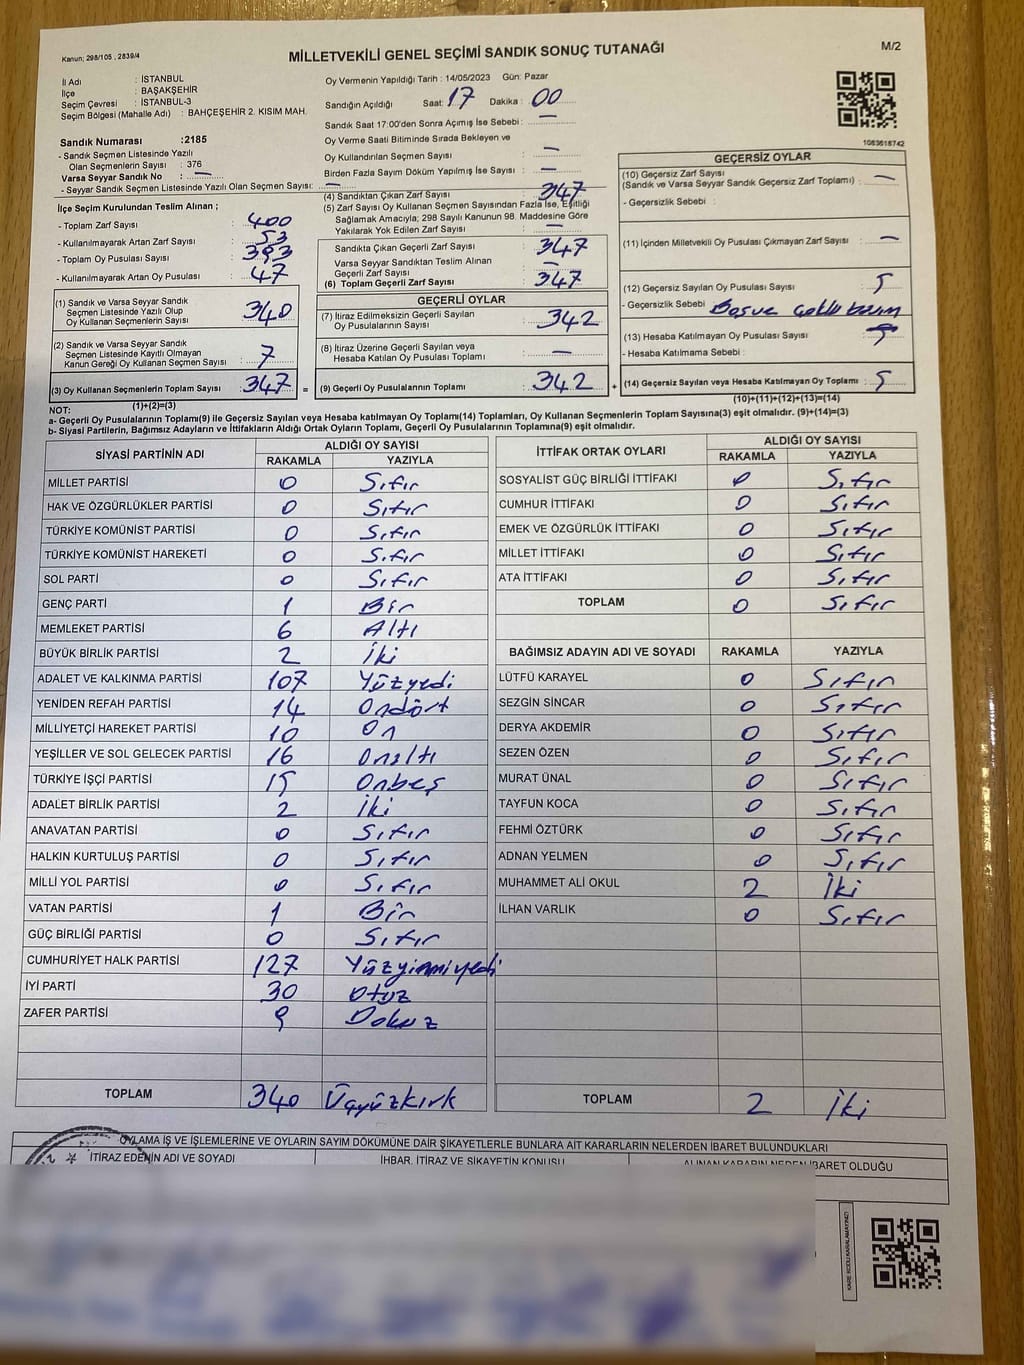 Kanun; 298/105 , 2839/4
MİLLETVEKİLİ GENEL SEÇİMİ SANDIK SONUÇ TUTANAĞI
M/2
İl Adı : İSTANBUL
İlçe : BAŞAKŞEHİR
Seçim Çevresi : İSTANBUL-3
Seçim Bölgesi (Mahalle Adı) : BAHÇEŞEHİR 2. KISIM MAH.
Sandık Numarası :2185
- Sandık Seçmen Listesinde Yazılı
Olan Seçmenlerin Sayısı : 376
Varsa Seyyar Sandık No : —
- Seyyar Sandık Seçmen Listesinde Yazılı Olan Seçmen Sayısı: —
Oy Vermenin Yapıldığı Tarih : 14/05/2023 Gün: Pazar
Sandığın Açıldığı Saat: 17 Dakika : 00
Sandık Saat 17:00'den Sonra Açımış İse Sebebi : —
Oy Verme Saati Bitiminde Sırada Bekleyen ve
Oy Kullandırılan Seçmen Sayısı : —
Birden Fazla Sayım Döküm Yapılmış İse Sayısı : —
1083618742
İlçe Seçim Kurulundan Teslim Alınan ;
- Toplam Zarf Sayısı : 400
- Kullanılmayarak Artan Zarf Sayısı : 53
- Toplam Oy Pusulası Sayısı : 393
- Kullanılmayarak Artan Oy Pusulası : 47
(1) Sandık ve Varsa Seyyar Sandık
Seçmen Listesinde Yazılı Olup
Oy Kullanan Seçmenlerin Sayısı : 340
(2) Sandık ve Varsa Seyyar Sandık
Seçmen Listesinde Kayıtlı Olmayan
Kanun Gereği Oy Kullanan Seçmen Sayısı : 7
(3) Oy Kullanan Seçmenlerin Toplam Sayısı : 347
(1)+(2)=(3)
(4) Sandıktan Çıkan Zarf Sayısı : 347
(5) Zarf Sayısı Oy Kullanan Seçmen Sayısından Fazla İse, Eşitliği
Sağlamak Amacıyla; 298 Sayılı Kanunun 98. Maddesine Göre
Yakılarak Yok Edilen Zarf Sayısı : —
Sandıkta Çıkan Geçerli Zarf Sayısı : 347
Varsa Seyyar Sandıktan Teslim Alınan
Geçerli Zarf Sayısı : —
(6) Toplam Geçerli Zarf Sayısı : 347
GEÇERLİ OYLAR
(7) İtiraz Edilmeksizin Geçerli Sayılan
Oy Pusulalarının Sayısı : 342
(8) İtiraz Üzerine Geçerli Sayılan veya
Hesaba Katılan Oy Pusulası Toplamı : —
= (9) Geçerli Oy Pusulalarının Toplamı : 342
GEÇERSİZ OYLAR
(10) Geçersiz Zarf Sayısı
(Sandık ve Varsa Seyyar Sandık Geçersiz Zarf Toplamı) : —
- Geçersizlik Sebebi :
(11) İçinden Milletvekili Oy Pusulası Çıkmayan Zarf Sayısı : —
(12) Geçersiz Sayılan Oy Pusulası Sayısı : 5
- Geçersizlik Sebebi :
(13) Hesaba Katılmayan Oy Pusulası Sayısı :
- Hesaba Katılmama Sebebi :
+ (14) Geçersiz Sayılan veya Hesaba Katılmayan Oy Toplamı : 5
(10)+(11)+(12)+(13)=(14)
NOT:
a- Geçerli Oy Pusulalarının Toplamı(9) ile Geçersiz Sayılan veya Hesaba katılmayan Oy Toplamı(14) Toplamları, Oy Kullanan Seçmenlerin Toplam Sayısına(3) eşit olmalıdır. (9)+(14)=(3)
b- Siyasi Partilerin, Bağımsız Adayların ve İttifakların Aldığı Ortak Oyların Toplamı, Geçerli Oy Pusulalarının Toplamına(9) eşit olmalıdır.
SİYASİ PARTİNİN ADI ALDIĞI OY SAYISI
RAKAMLA YAZIYLA
MİLLET PARTİSİ 0 Sıfır
HAK VE ÖZGÜRLÜKLER PARTİSİ 0 Sıfır
TÜRKİYE KOMÜNİST PARTİSİ 0 Sıfır
TÜRKİYE KOMÜNİST HAREKETİ 0 Sıfır
SOL PARTİ 0 Sıfır
GENÇ PARTİ 1 Bir
MEMLEKET PARTİSİ 6 Altı
BÜYÜK BİRLİK PARTİSİ 2 İki
ADALET VE KALKINMA PARTİSİ 107 Yüzyedi
YENİDEN REFAH PARTİSİ 14 Ondört
MİLLİYETÇİ HAREKET PARTİSİ 10 On
YEŞİLLER VE SOL GELECEK PARTİSİ 16 Onaltı
TÜRKİYE İŞÇİ PARTİSİ 15 Onbeş
ADALET BİRLİK PARTİSİ 2 İki
ANAVATAN PARTİSİ 0 Sıfır
HALKIN KURTULUŞ PARTİSİ 0 Sıfır
MİLLİ YOL PARTİSİ 0 Sıfır
VATAN PARTİSİ 1 Bir
GÜÇ BİRLİĞİ PARTİSİ 0 Sıfır
CUMHURİYET HALK PARTİSİ 127 Yüzyirmiyedi
İYİ PARTİ 30 Otuz
ZAFER PARTİSİ 9 Dokuz
TOPLAM 340 Üçyüzkırk
İTTİFAK ORTAK OYLARI ALDIĞI OY SAYISI
RAKAMLA YAZIYLA
SOSYALİST GÜÇ BİRLİĞİ İTTİFAKI 0 Sıfır
CUMHUR İTTİFAKI 0 Sıfır
EMEK VE ÖZGÜRLÜK İTTİFAKI 0 Sıfır
MİLLET İTTİFAKI 0 Sıfır
ATA İTTİFAKI 0 Sıfır
TOPLAM 0 Sıfır
BAĞIMSIZ ADAYIN ADI VE SOYADI RAKAMLA YAZIYLA
LÜTFÜ KARAYEL 0 Sıfır
SEZGİN SİNCAR 0 Sıfır
DERYA AKDEMİR 0 Sıfır
SEZEN ÖZEN 0 Sıfır
MURAT ÜNAL 0 Sıfır
TAYFUN KOCA 0 Sıfır
FEHMİ ÖZTÜRK 0 Sıfır
ADNAN YELMEN 0 Sıfır
MUHAMMET ALİ OKUL 2 İki
İLHAN VARLIK 0 Sıfır
TOPLAM 2 İki
OYLAMA İŞ VE İŞLEMLERİNE VE OYLARIN SAYIM DÖKÜMÜNE DAİR ŞİKAYETLERLE BUNLARA AİT KARARLARIN NELERDEN İBARET BULUNDUKLARI
İTİRAZ EDENİN ADI VE SOYADI İHBAR, İTİRAZ VE ŞİKAYETİN KONUSU ALINAN KARARIN NEDEN İBARET OLDUĞU
KARE KODU KARALAMAYINIZ!